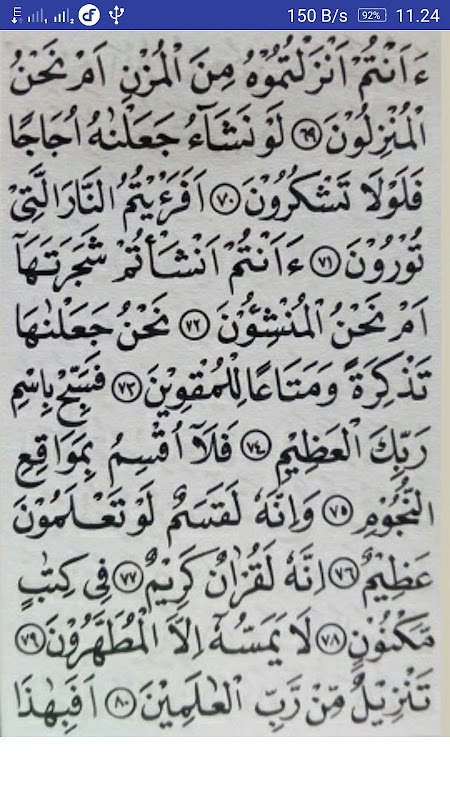 150 B/s 92% 11.24
ءَاَنْتُمْ اَنْزَلْتُمُوْهُ مِنَ الْمُزْنِ اَمْ نَحْنُ
الْمُنْزِلُوْنَ ٦٩ لَوْ نَشَآءُ جَعَلْنٰهُ اُجَاجًا
فَلَوْلَا تَشْكُرُوْنَ ٧٠ اَفَرَءَيْتُمُ النَّارَ الَّتِيْ
تُوْرُوْنَ ٧١ ءَاَنْتُمْ اَنْشَأْتُمْ شَجَرَتَهَآ
اَمْ نَحْنُ الْمُنْشِـُٔوْنَ ٧٢ نَحْنُ جَعَلْنٰهَا
تَذْكِرَةً وَّمَتَاعًا لِّلْمُقْوِيْنَ ٧٣ فَسَبِّحْ بِاسْمِ
رَبِّكَ الْعَظِيْمِ ٧٤ فَلَآ اُقْسِمُ بِمَوَاقِعِ
النُّجُوْمِ ٧٥ وَاِنَّهٗ لَقَسَمٌ لَّوْ تَعْلَمُوْنَ
عَظِيْمٌ ٧٦ اِنَّهٗ لَقُرْاٰنٌ كَرِيْمٌ ٧٧ فِيْ كِتٰبٍ
مَّكْنُوْنٍ ٧٨ لَا يَمَسُّهٗٓ اِلَّا الْمُطَهَّرُوْنَ ٧٩
تَنْزِيْلٌ مِّنْ رَّبِّ الْعٰلَمِيْنَ ٨٠ اَفَبِهٰذَا